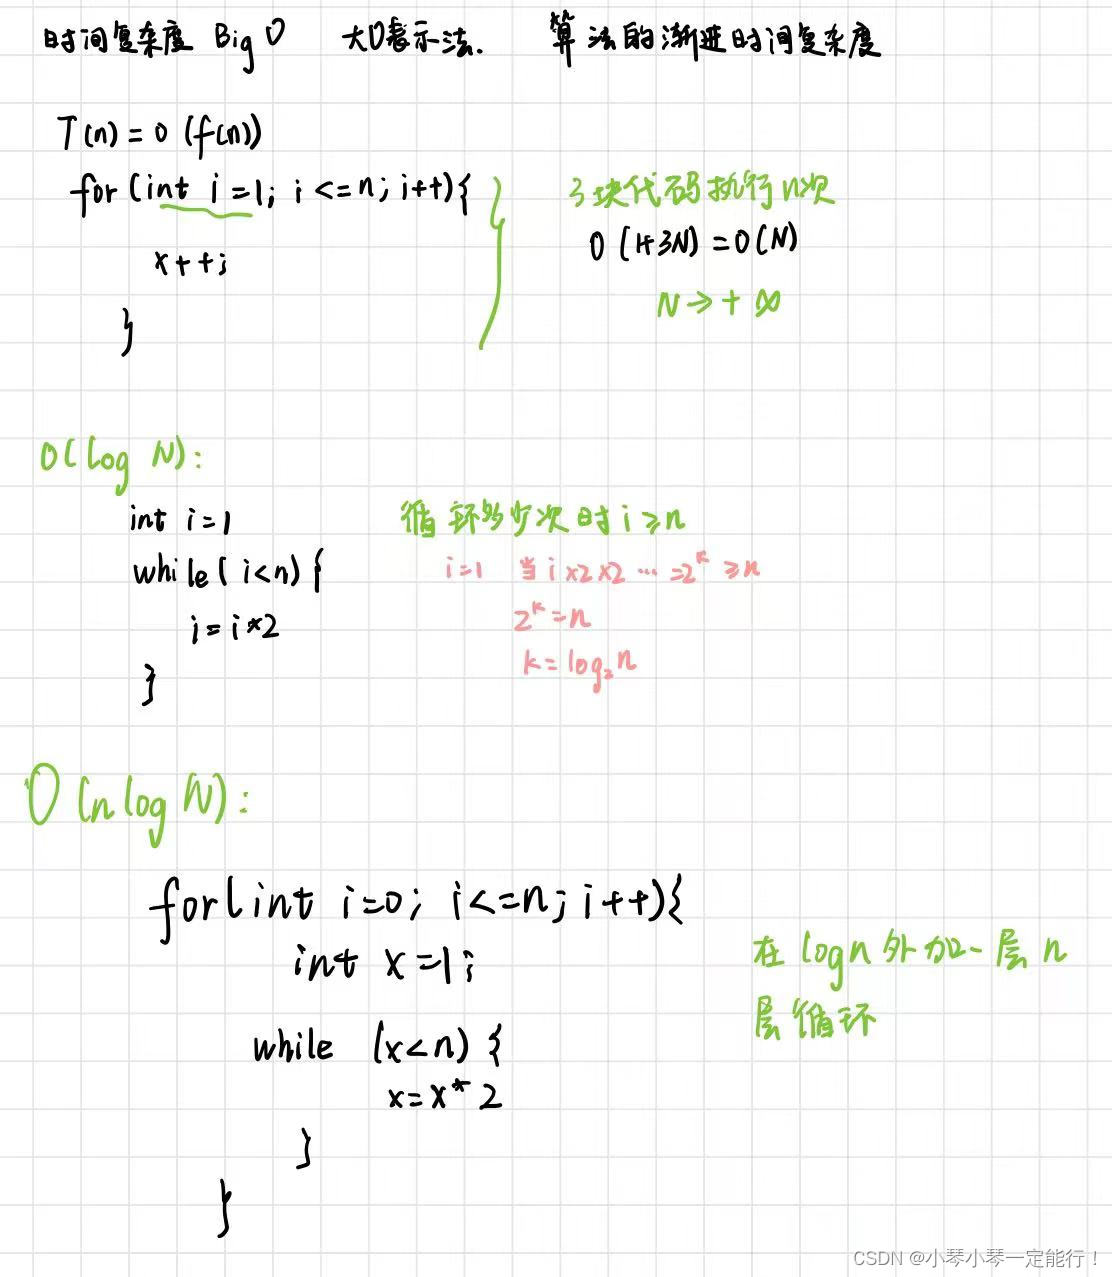 时间复杂度 Big O 大O表示法. 算法的渐进时间复杂度
T(n) = O (f(n))
for (int i=1; i <=n; i++){
x++;
}
3块代码执行n次
O (1+3N) = O(N)
N→+∞
O(log N):
int i=1
while( i<n) {
i= i*2
}
循环多少次时 i≥n
i=1 当 i×2×2 … =2^k ≥n
2^k=n
k=log₂n
O (nlog N):
for(int i=0; i<=n; i++){
int x=1;
while (x<n) {
x=x*2
}
}
在 logn 外加一层 n
层循环
CSDN @小琴小琴一定能行！